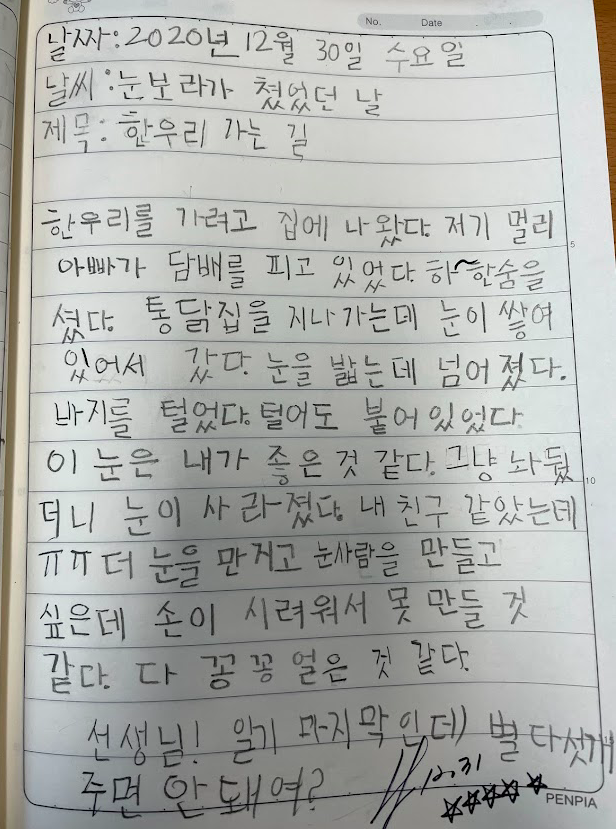 No. Date
날짜:2020년 12월 30일 수요일
날씨:눈보라가 쳤었던 날
제목:한우리 가는 길
한우리를 가려고 집에 나왔다. 저기 멀리
아빠가 담배를 피고 있었다. 하~한숨을
셨다. 통닭집을 지나가는데 눈이 쌓여
있어서 갔다. 눈을 밟는데 넘어졌다.
바지를 털었다. 털어도 붙어있었다.
이 눈은 내가 좋은것 같다. 그냥 놔뒀
더니 눈이 사라졌다. 내 친구 같았는데
ㅠㅠ 더 눈을 만지고 눈사람을 만들고
싶은데 손이 시려워서 못 만들 것
같다. 다 꽁꽁 얼은 것 같다.
선생님! 일기 마지막인데 별 다섯개
주면 안돼여?
12.31
☆☆☆☆☆
PENPIA
5
10